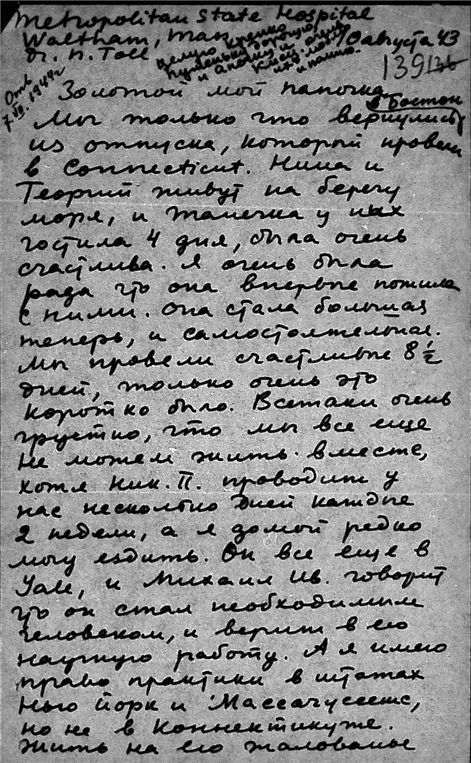 Metropolitan State Hospital
Waltham, Mass
Dr. N. Toll
августа 43
целую крепко
и очень
139
Отв.
7 1944г
Золотой мой папочка,
Мы только что вернулись в Бостон
из отпуска, который провели
в Connecticut. Нина и
Георгий живут на берегу
моря, и Танечка у них
гостила 4 дня, была очень
счастлива. Я очень была
рада что она впервые пожила
с ними. Она стала большая
теперь, и самостоятельная.
Мы провели счастливые 8 1/2
дней, только очень это
коротко было. Всетаки очень
грустно, что мы все еще
не можем жить вместе,
хотя Ник. П. проводит у
нас несколько дней каждые
2 недели, а я домой редко
могу ездить. Он все еще в
Yale, и Михаил Ив. говорит
что он стал необходимым
человеком, и верит в его
научную работу. А я имею
право практики в штатах
Нью Йорк и Массачусетс,
но не в Коннектикуте.
Жить на его жалованье